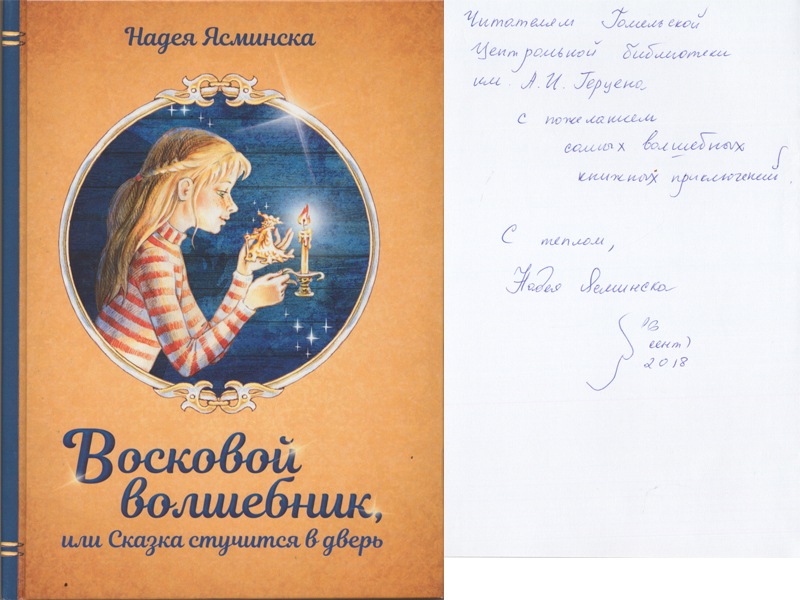 Надея Ясминска
Восковой
волшебник,
или Сказка стучится в дверь
Читателям Гомельской
Центральной библиотеки
им. А.И. Герцена
с пожеланием
самых волшебных
книжных приключений.
С теплом,
Надея Ясминска
сент
2018